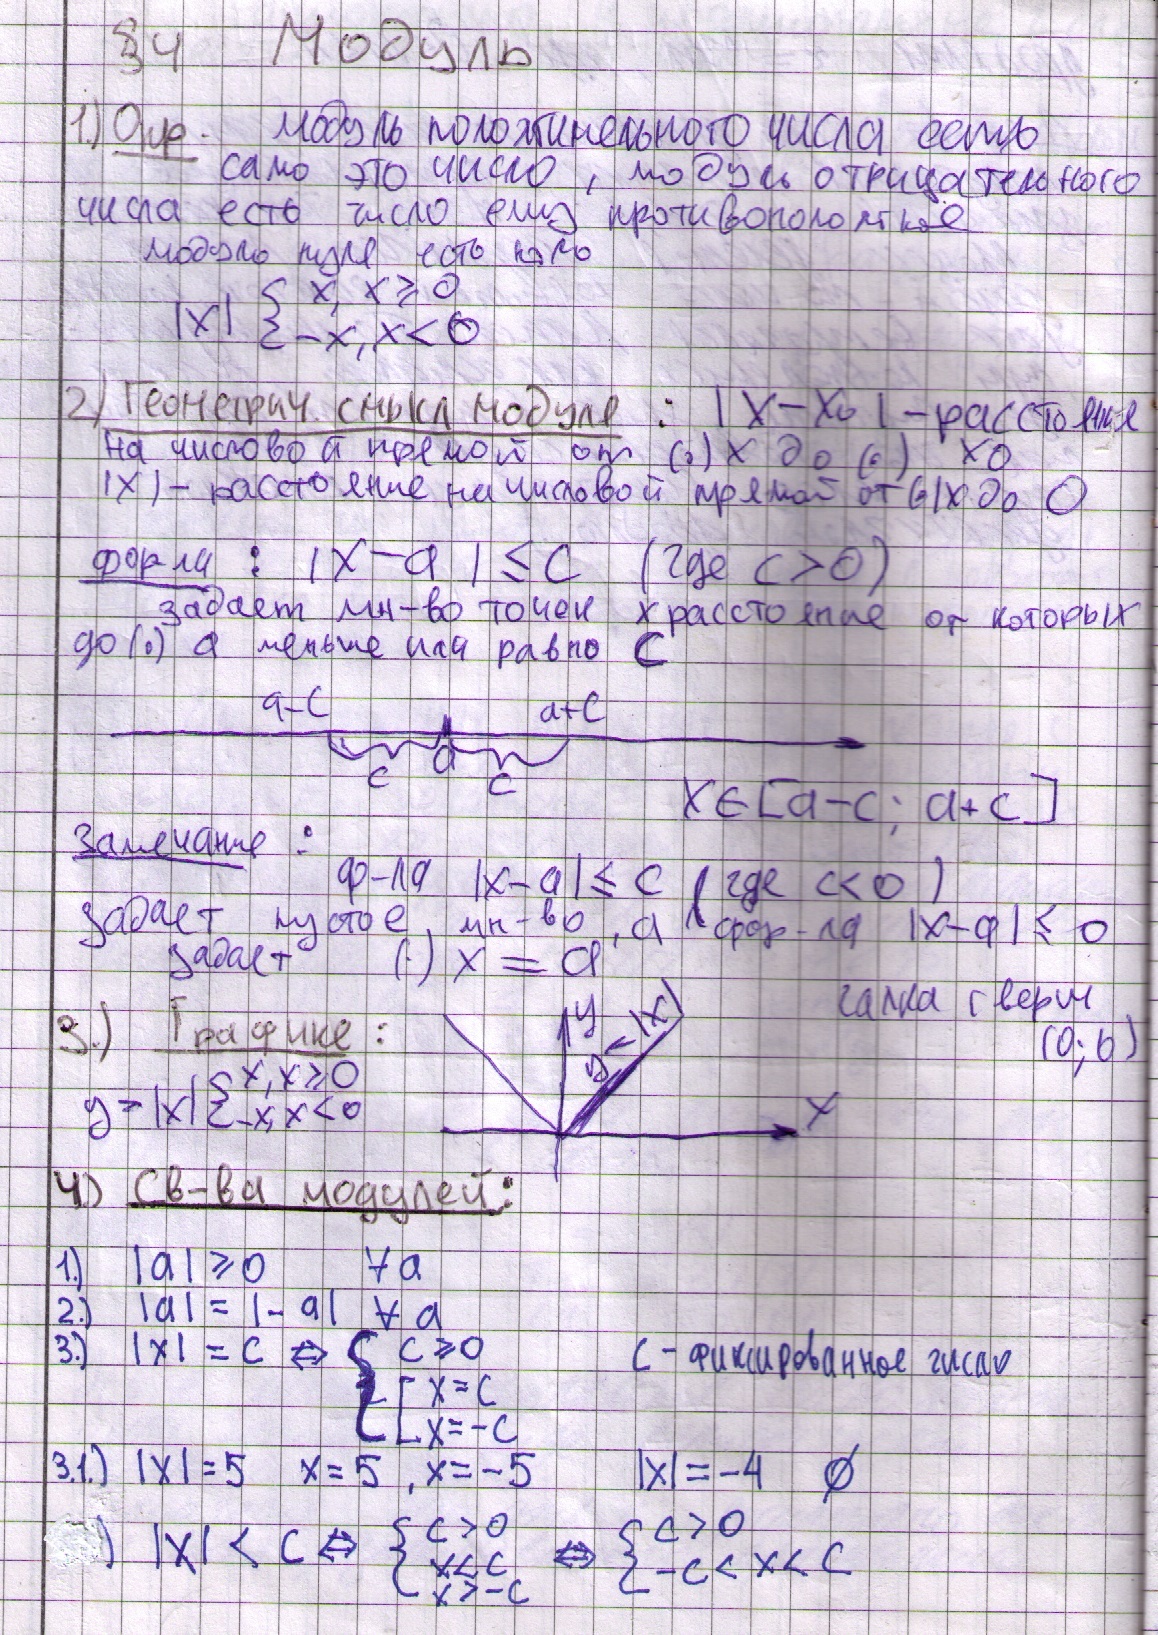 §4 Модуль
1.) Опр. Модуль положительного числа есть
само это число, модуль отрицательного
числа есть число ему противоположное
модуль нуля есть ноль
|x| { x, x ≥ 0
-x, x < 0
2) Геометрич. смысл модуля : |x - x₀| - расстояние
на числовой прямой от (·) x до (·) x0
|x| - расстояние на числовой прямой от (·) x до 0
форма : |x - a| ≤ c (где c > 0)
задает мн-во точек x расстояние от которых
до (·) a меньше или равно c
a-c a+c
c a c
x ∈ [a-c; a+c]
Замечание :
ф-ла |x-a| ≤ c (где c<0)
задает пустое мн-во, а фор-ла |x-a| ≤ 0
задает (·) x = a
3.) Графике : y y = |x| галка с верш
(0; 0)
y = |x| { x, x ≥ 0
-x, x < 0
x
4) Св-ва модулей:
1.) |a| ≥ 0 ∀ a
2.) |a| = |-a| ∀ a
3.) |x| = c ⇔ { c ≥ 0 c - фиксированное число
[ x = c
x = -c
3.1.) |x| = 5 x = 5 , x = -5 |x| = -4 ∅
) |x| < c ⇔ { c > 0 ⇔ { c > 0
x < c -c < x < c
x > -c